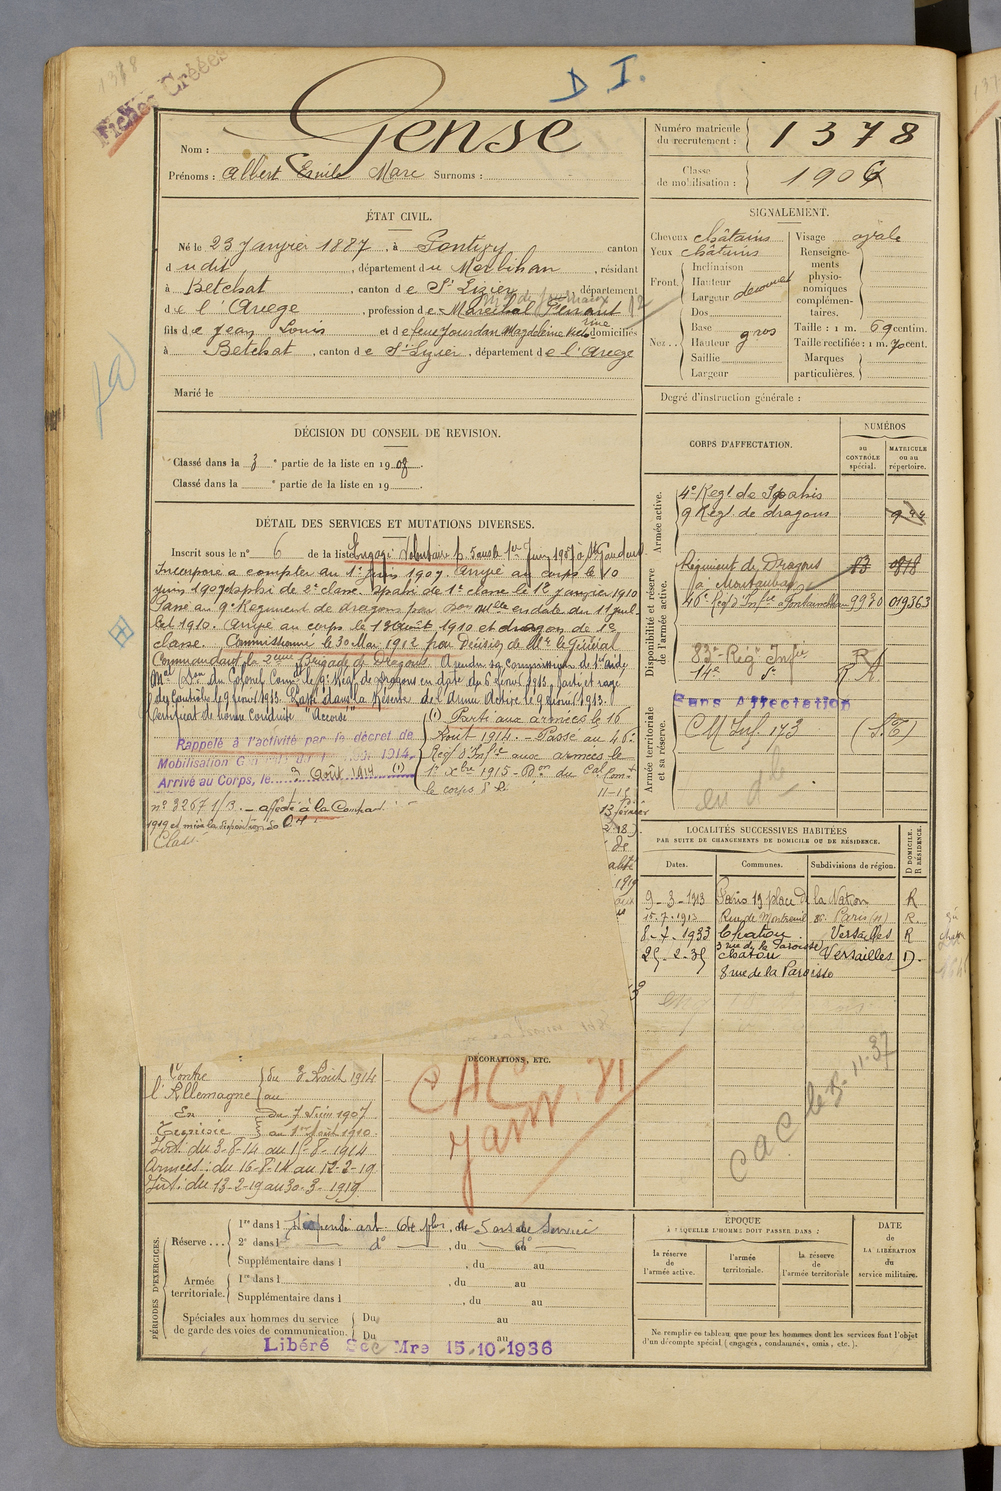 1378
Fiches Créées
D. I.
Nom : Gense
Prénoms : Albert Emile Marc Surnoms :
Numéro matricule du recrutement : 1378
Classe de mobilisation : 1906
ÉTAT CIVIL.
Né le 23 Janvier 1887, à Pontivy canton
dudit, département du Morbihan, résidant
à Betchat, canton de St Lizier, département
de l'Ariège, profession de Maréchal Ferrant
fils de Jean Louis et de feue Jourdan Magdeleine domiciliés
à Betchat, canton de St Lizier, département de l'Ariège
Marié le
SIGNALEMENT.
Cheveux châtains
Yeux châtains
Front Inclinaison
Hauteur
Largeur
Nez Dos
Base gros
Hauteur
Saillie
Largeur
Visage ovale
Renseignements physionomiques complémentaires.
Taille : 1 m. 69 centim.
Taille rectifiée : 1 m. 70 cent.
Marques particulières.
Degré d'instruction générale :
DÉCISION DU CONSEIL DE REVISION.
Classé dans la 3e partie de la liste en 1908.
Classé dans la e partie de la liste en 19
DÉTAIL DES SERVICES ET MUTATIONS DIVERSES.
Inscrit sous le n° 6 de la liste Engagé Volontaire p. 5 ans le 1er Juin 1907 à St Gaudens
Incorporé à compter du 1er Juin 1907. Arrivé au corps le 10
juin 1907 Spahi de 2e classe. Spahi de 1e classe le 12 janvier 1910
Passé au 9e Régiment de dragons par en date du 11 juil
let 1910. Arrivé au corps le 1 août 1910 et dragon de 1e
classe. Commissionné le 30 Mai 1912 par Décision de Mr le Général
Commandant la 2eme Brigade de Dragons. A rendu sa Commission de 1er aide
Mal Don du Colonel Comdt le 9e Régt de Dragons en date du 6 février 1913. Parti et rayé
des Contrôles le 9 février 1913. Passé dans la Réserve de l'Armée Active le 9 février 1913.
Certificat de bonne Conduite "Accordé"
Rappelé à l'activité par le décret de
Mobilisation Générale du 1er Août 1914.
Arrivé au Corps, le 3 Août 1914 (1)
(1) Parti aux armées le 16
Août 1914. - Passé au 46e
Régt d'Infie aux armées le
1er Xbre 1915 - Don du Cal Comt
le corps
n° 3267 1/3. - affecté à la Compas
1919 et mis à la disposition
Classé
CORPS D'AFFECTATION.
NUMÉROS
au CONTRÔLE spécial.
MATRICULE ou au répertoire.
Armée active.
4e Regt de Spahis
9 Régt de dragons 944
Disponibilité et réserve de l'armée active.
Régiment de Dragons
à Montauban
46e Régt d'Infie à Fontainebleau 9930 019363
83e Régt Infie
14e
Sans Affectation
Armée territoriale et sa réserve.
CM Inf. 173 (S.T)
LOCALITÉS SUCCESSIVES HABITÉES
PAR SUITE DE CHANGEMENTS DE DOMICILE OU DE RÉSIDENCE.
D DOMICILE. R RÉSIDENCE.
Dates. Communes. Subdivisions de région.
9-3-1913 Paris 19 place de la Nation R
15-7-1913 Rue de Montreuil 80. Paris (11) R.
8-7-1933 Chatou Versailles R
3 rue de la Paroisse
25-2-35 Chatou Versailles D.
8 rue de la Paroisse
DÉCORATIONS, ETC.
Contre l'Allemagne du 3 Août 1914
au
En Tunisie du 7 Juin 1907
au 1er Août 1910.
Int. du 3-8-14 au 15-8-1914
Armées : du 16-8-14 au 12-2-19
Int. du 13-2-19 au 30-3-1919
CAC
Janv. 71
CAC le 5-11-37
PÉRIODES D'EXERCICES.
Réserve
1re dans l Dispensé art. , de 5 ans de Service
2e dans l d° , du d°
Supplémentaire dans l , du au
Armée territoriale.
1re dans l , du au
Supplémentaire dans l , du au
Spéciales aux hommes du service de garde des voies de communication.
Du au
Du au
Libéré Sce Mre 15.10.1936
ÉPOQUE
À LAQUELLE L'HOMME DOIT PASSER DANS :
la réserve de l'armée active.
l'armée territoriale.
la réserve de l'armée territoriale
DATE de LA LIBÉRATION du service militaire.
Ne remplir ce tableau que pour les hommes dont les services font l'objet
d'un décompte spécial (engagés, condamnés, omis, etc.).